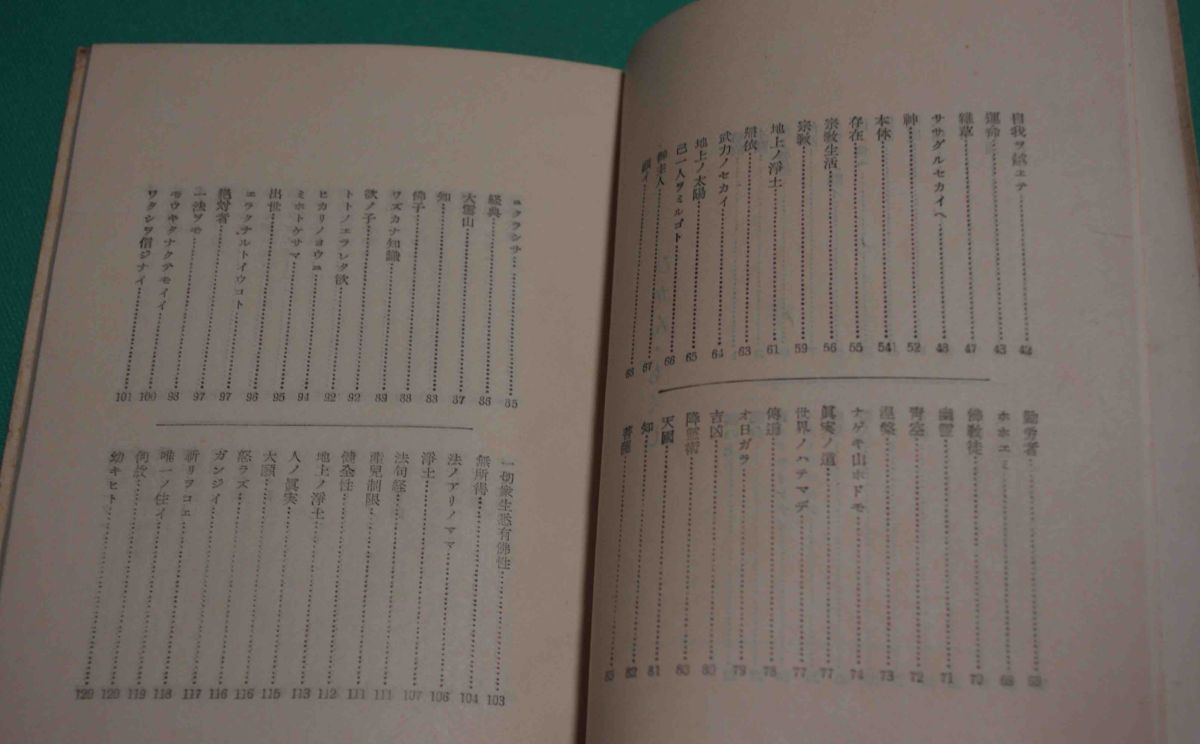 自我ヲ鎔エテ……42
運命……43
雑草……47
ササグルセカイヘ……48
神……52
本体……54
存在……55
宗教生活……56
宗教……59
地上ノ淨土……61
無依……63
武力ノセカイ……64
地上ノ太陽……65
己一人ヲミルゴト……66
御主人……67
願イ……68
勤労者……68
ホホエミ……68
佛教徒……70
幽霊……71
青空……72
涅槃……73
ナゲキ山ホドモ……74
眞実ノ道……77
世界ノハテマデ……77
傳道……78
オ日ガラ……79
吉凶……80
降霊術……80
天國……81
知……82
菩薩……83
ユクランサ……85
経典……86
大雪山……87
知……88
佛子……88
ワズカナ知識……88
欲ノ子……89
トトノエラレタ欲……92
ヒカリノヨウニ……92
ミホトケサマ……94
出世……95
エラクナルトイウコト……96
絶対者……97
一法ヲモ……97
モウキタナクテモイイ……98
ワタシヲ信ジナイ……100
……101
一切衆生悉有佛性……103
無所得……104
法ノアリノママ……106
淨土……107
法句経……111
産児制限……111
健全性……112
地上ノ淨土……113
人ノ眞実……115
大願……116
怒ラズ……116
ガンジイ……117
祈リヲコエ……118
唯一ノ住イ……119
何故……120
幼キヒト……120